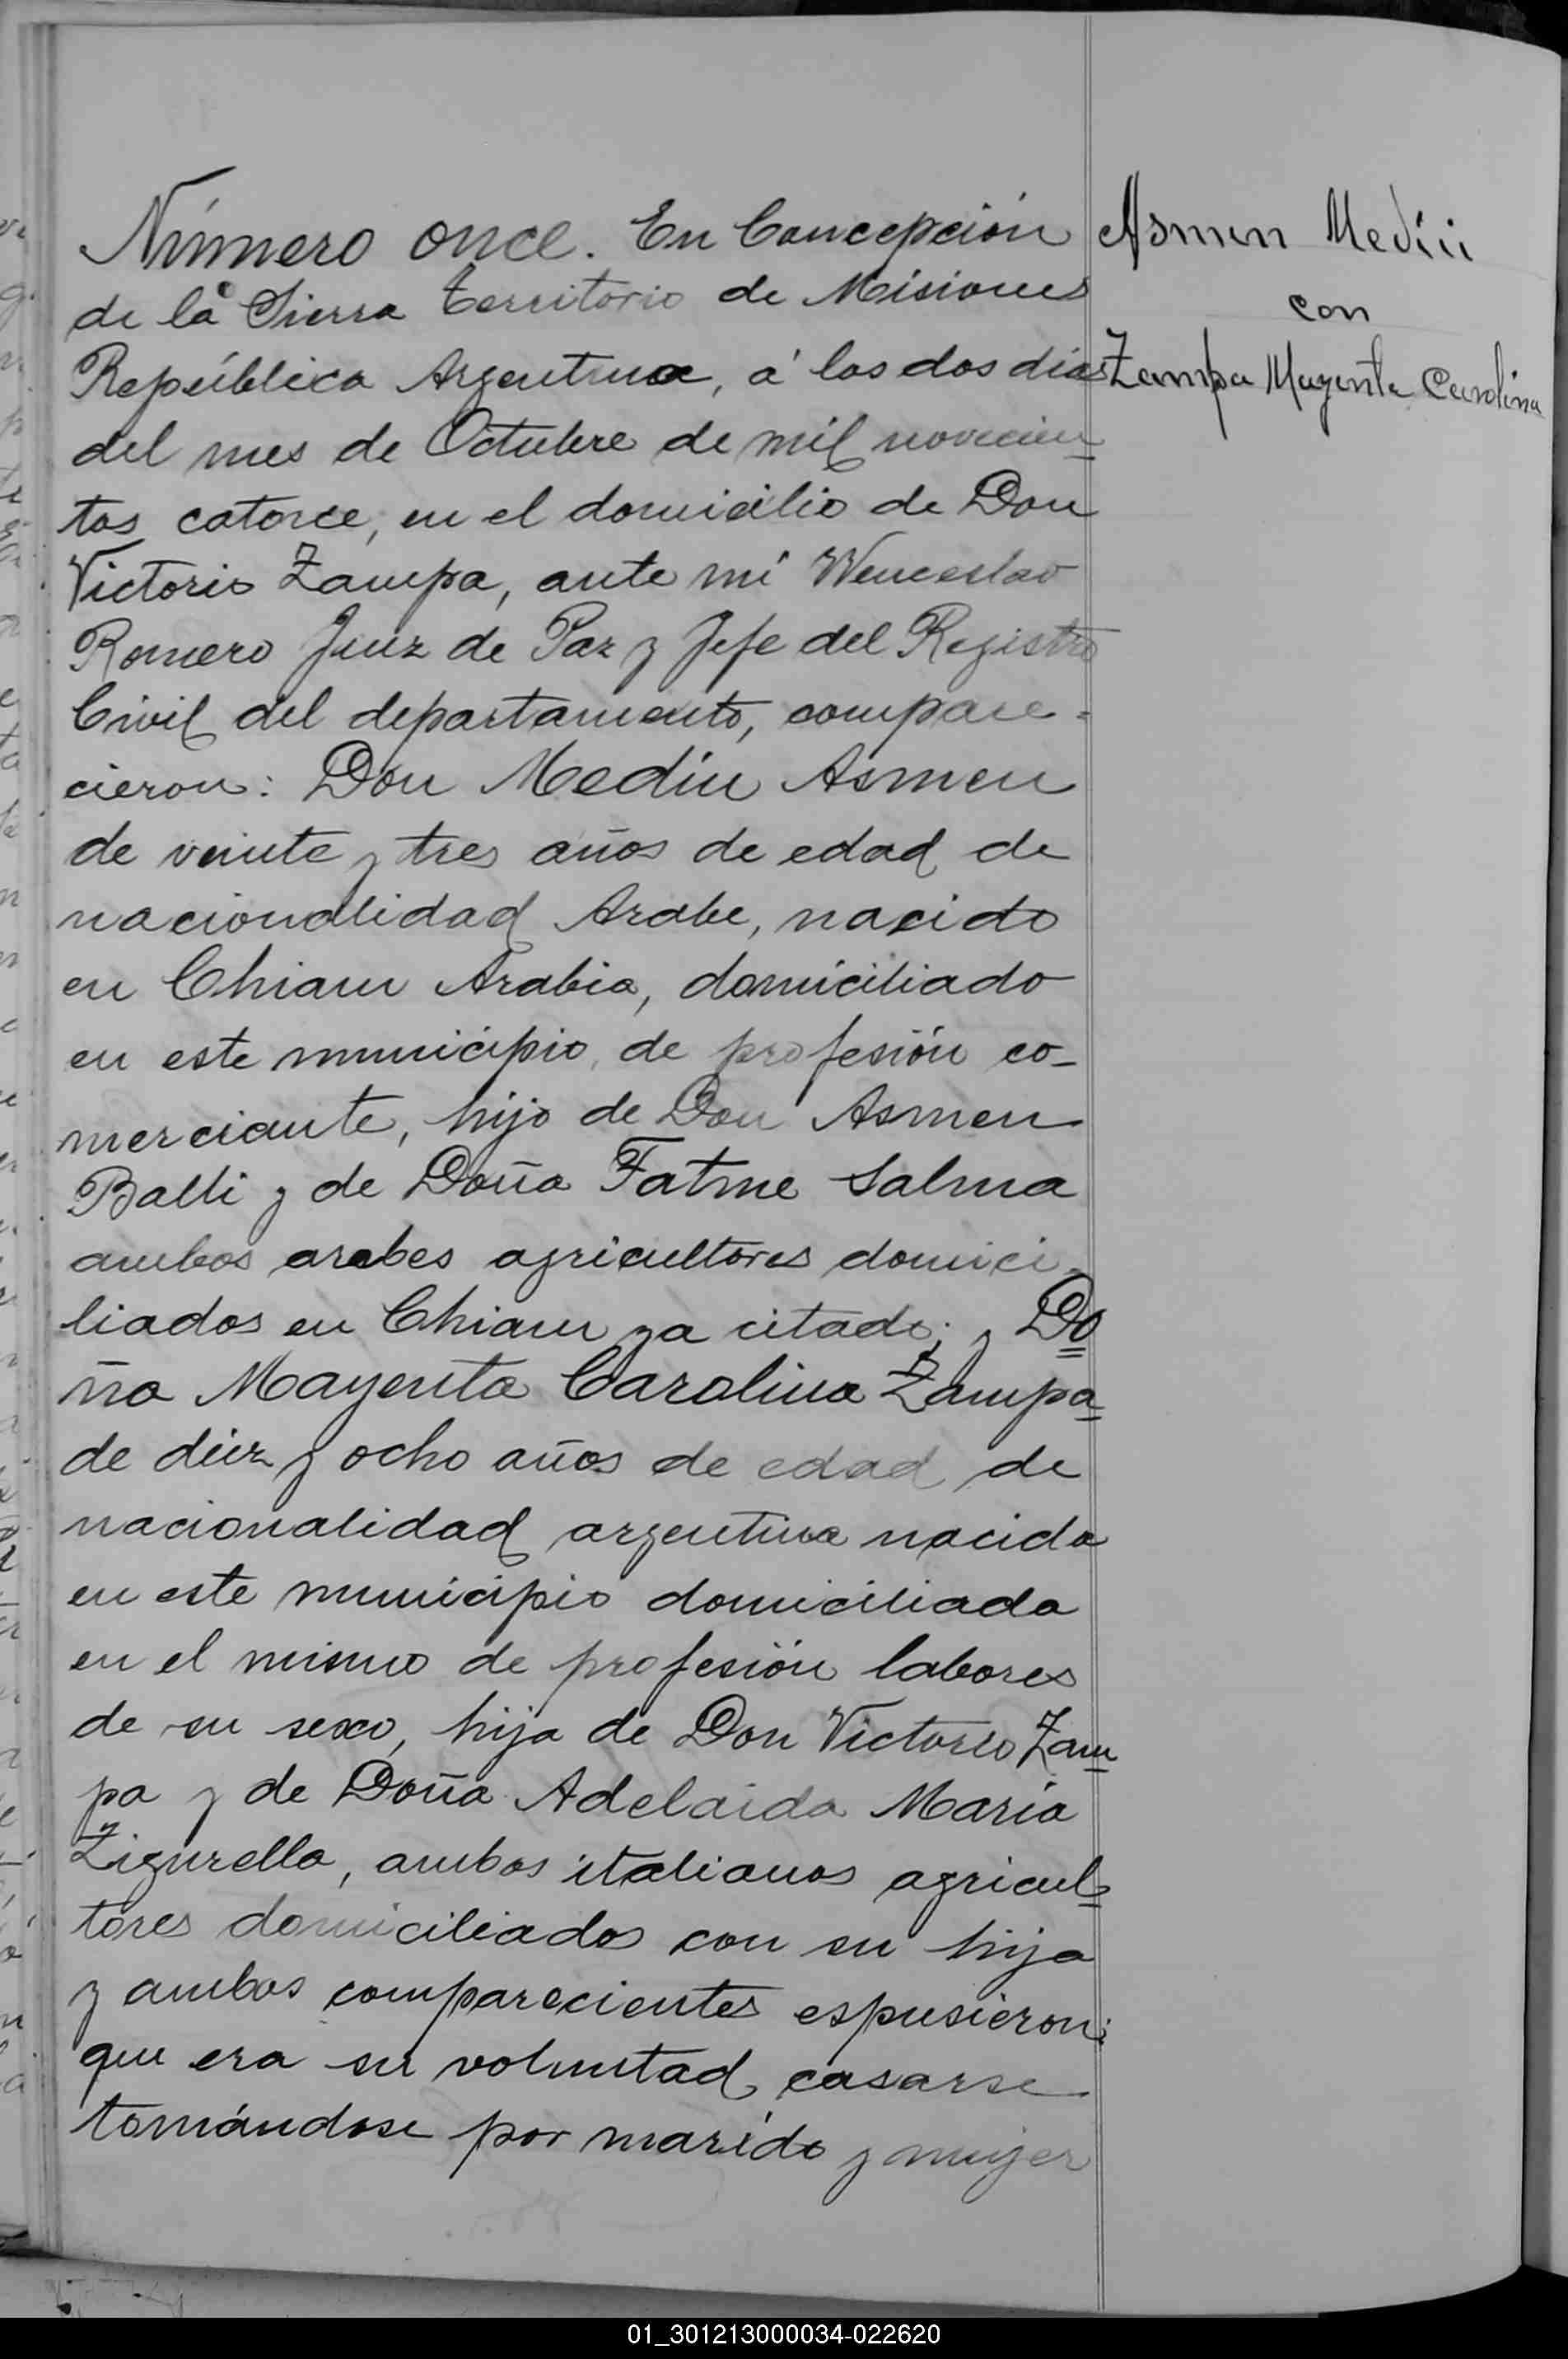 Número once. En Concepción
de la Sierra territorio de Misiones
República Argentina, á los dos dias
del mes de Octubre de mil novecien-
tos catorce, en el domicilio de Don
Victorio Zampa, ante mí Wenceslao
Romero Juez de Paz y Jefe del Registro
Civil del departamento, compare-
cieron: Don Medin Asmen
de veinte y tres años de edad de
nacionalidad Arabe, nacido
en Chiam Arabia, domiciliado
en este municipio, de profesión co-
merciante, hijo de Don Asmen
Balli y de Doña Fatme Salma
ambos arabes agricultores domici-
liados en Chiam ya citado; y Do
ña Mayenta Carolina Zampa
de diez y ocho años de edad de
nacionalidad argentina nacida
en este municipio domiciliada
en el mismo de profesión labores
de su sexo, hija de Don Victorio Zam
pa y de Doña Adelaida María
Zigurella, ambos italianos agricul
tores domiciliados con su hija
y ambos comparecientes espusieron:
que era su voluntad casarse
tomándose por marido y mujer
Asmen Medin
con
Zampa Mayenta Carolina
01_301213000034-022620